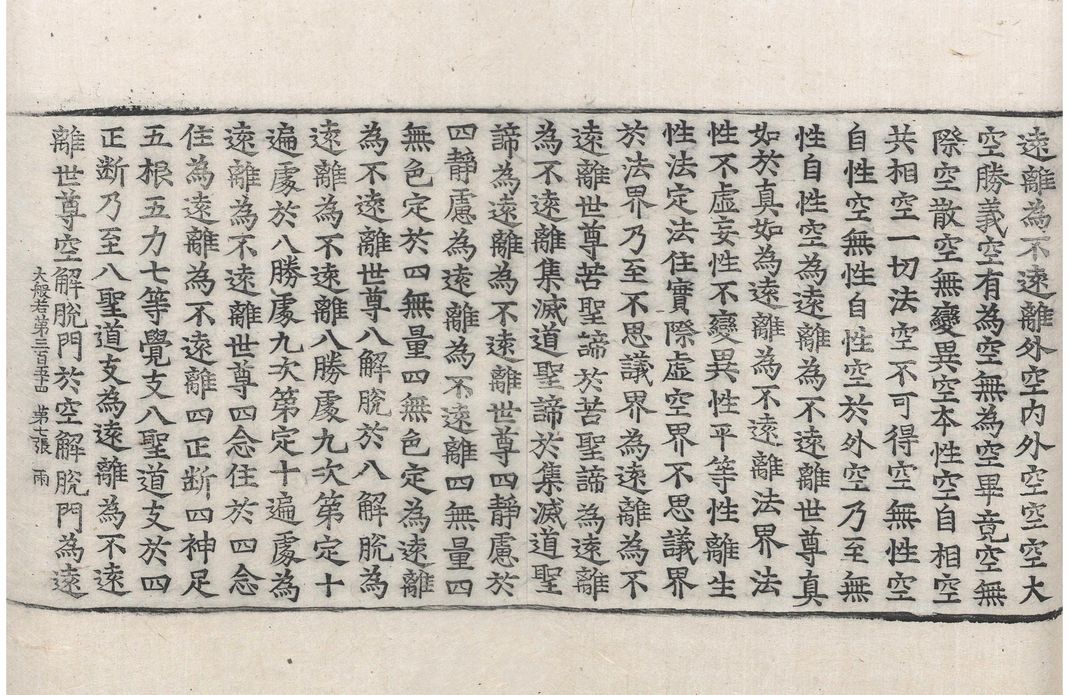 遠離為不遠離外空內外空空空大
空勝義空有為空無為空畢竟空無
際空散空無變異空本性空自相空
共相空一切法空不可得空無性空
自性空無性自性空於外空乃至無
性自性空為遠離為不遠離世尊真
如於真如為遠離為不遠離法界法
性不虛妄性不變異性平等性離生
性法定法住實際虛空界不思議界
於法界乃至不思議界為遠離為不
遠離世尊苦聖諦於苦聖諦為遠離
為不遠離集滅道聖諦於集滅道聖
諦為遠離為不遠離世尊四靜慮於
四靜慮為遠離為不遠離四無量四
無色定於四無量四無色定為遠離
為不遠離世尊八解脫於八解脫為
遠離為不遠離八勝處九次第定十
遍處於八勝處九次第定十遍處為
遠離為不遠離世尊四念住於四念
住為遠離為不遠離四正断四神足
五根五力七等覺支八聖道支於四
正断乃至八聖道支為遠離為不遠
離世尊空解脫門於空解脫門為遠
大般若第三百五十四 第七張 雨